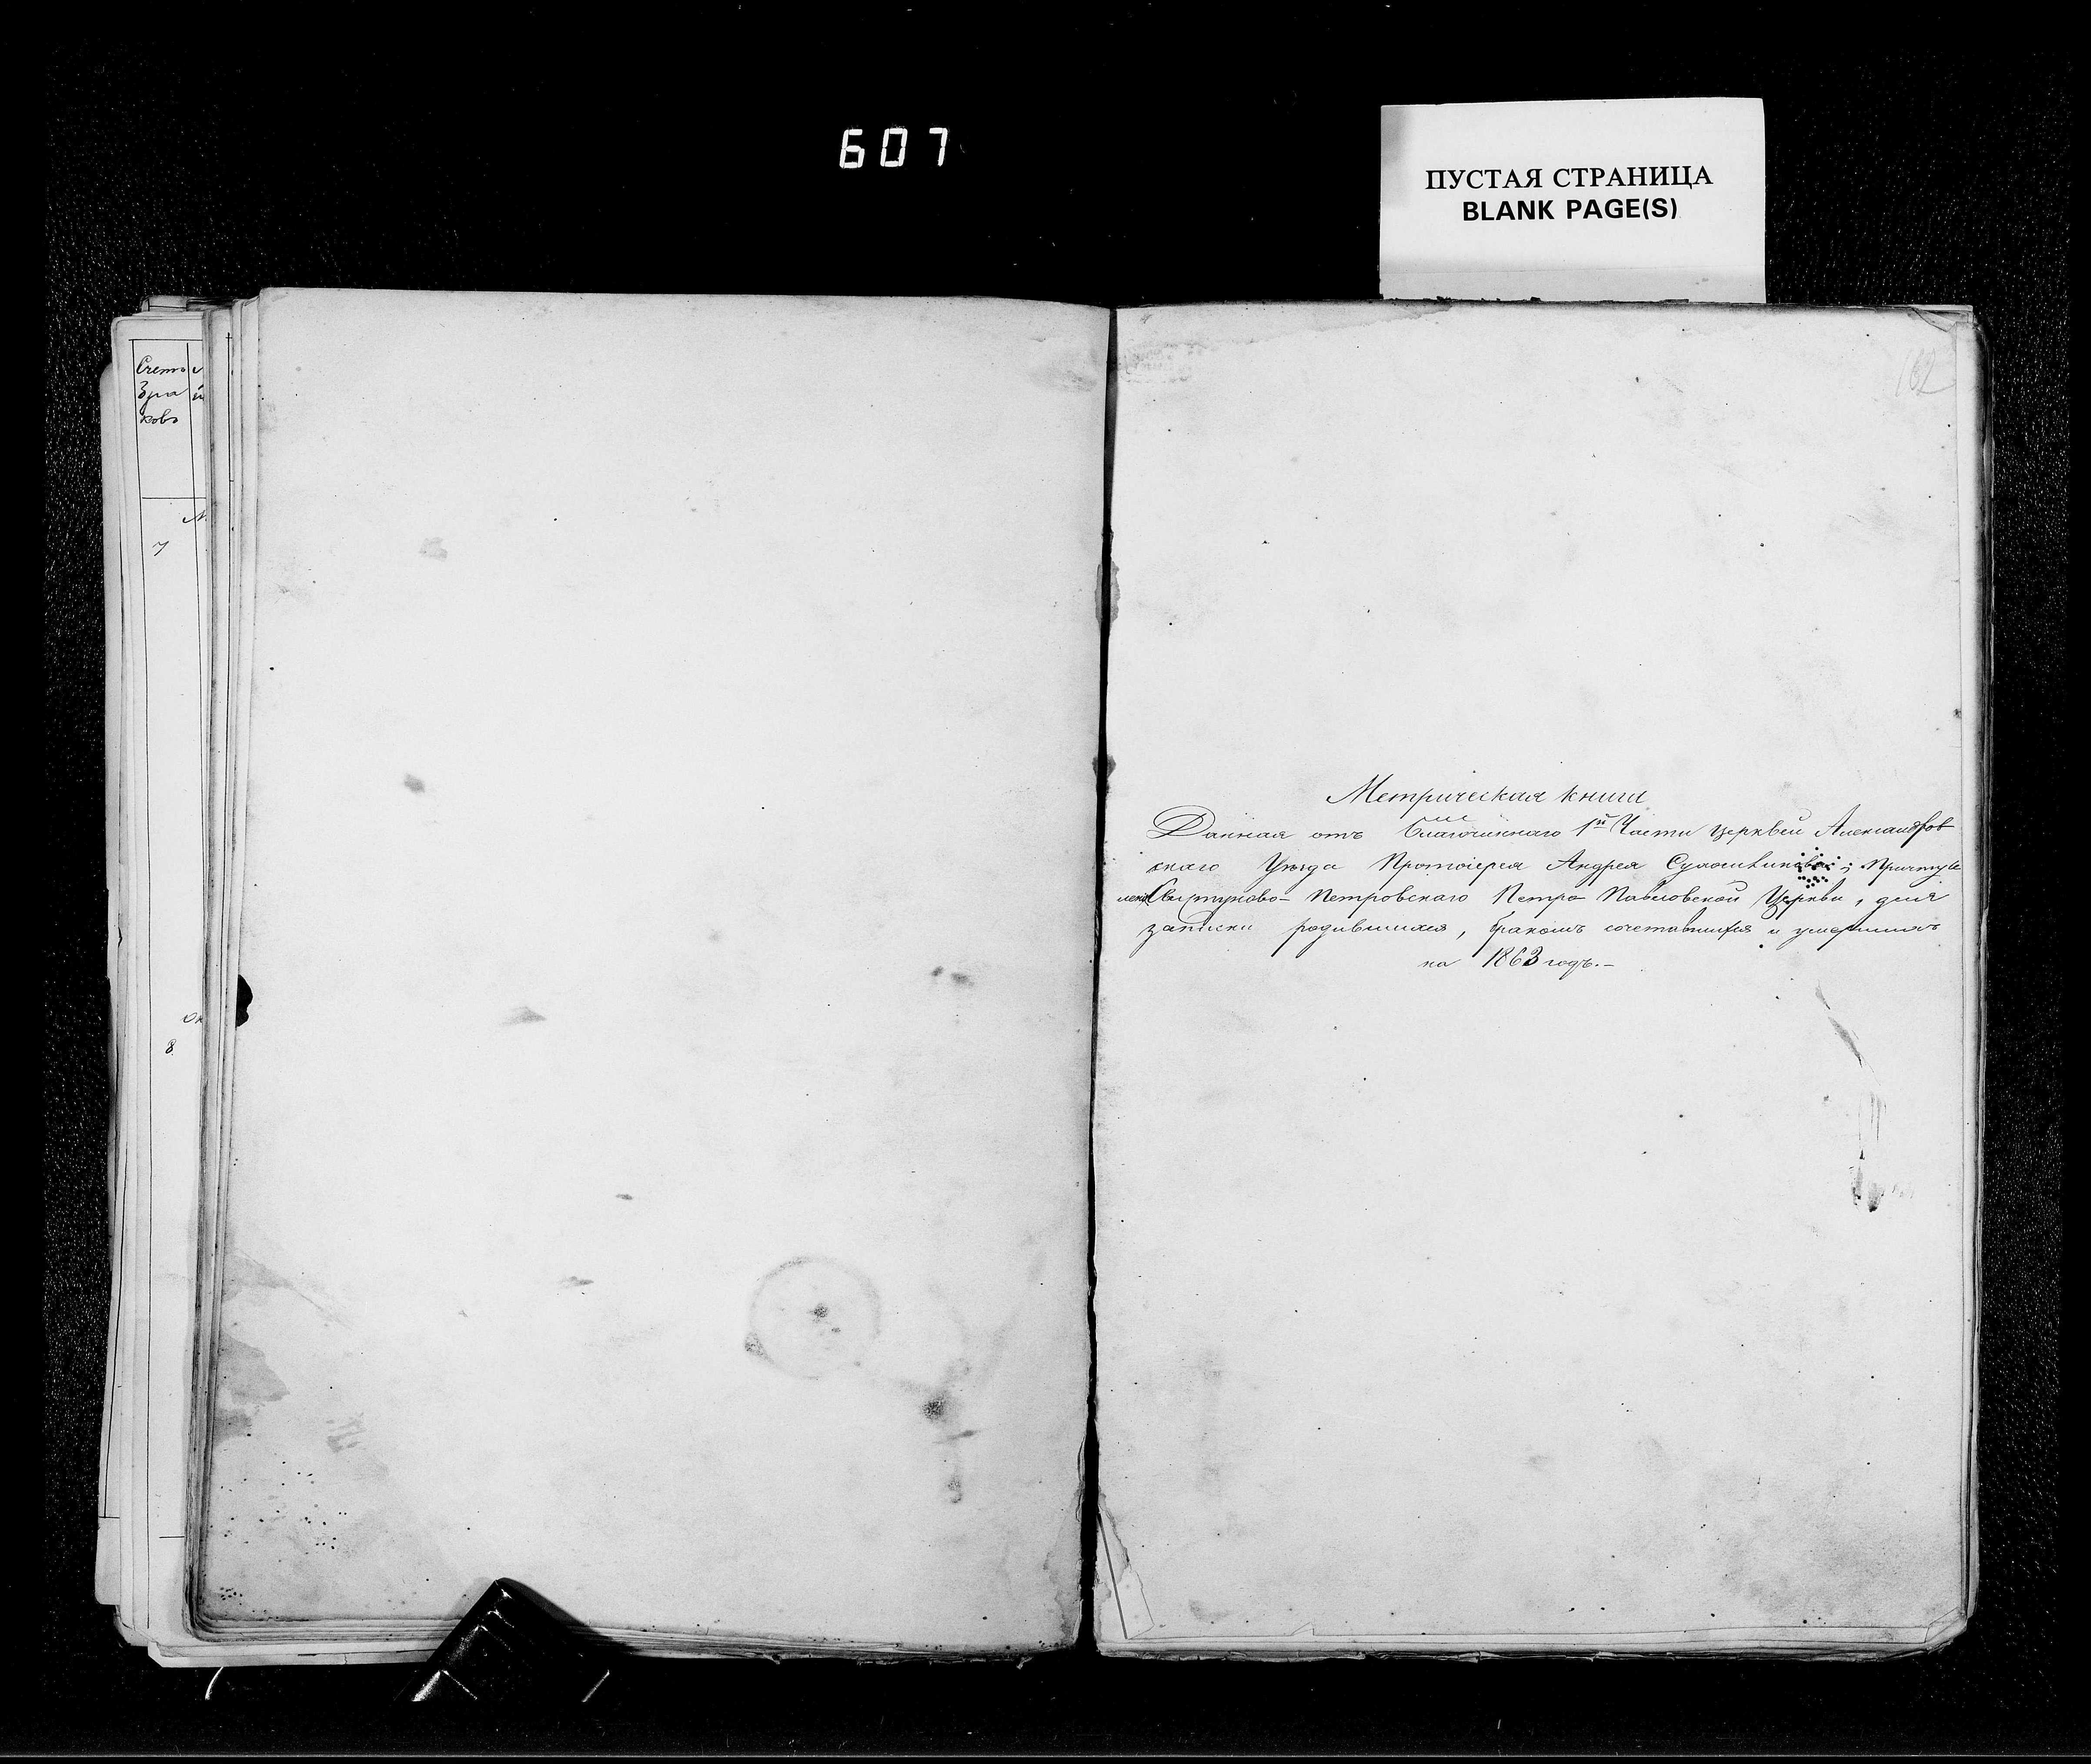 607
ПУСТАЯ СТРАНИЦА
BLANK PAGE(S)
162
Счетъ
бра
ковъ
7
8
Метрическая книга
Данная отъ Благочиннаго 1й Части церквей Александров
скаго Уѣзда Протоіерея Андрея Причту
Петровскаго Петро-Павловской Церкви, для
записки родившихся, бракомъ сочетавшихся и умершихъ
на 1863 годъ.-